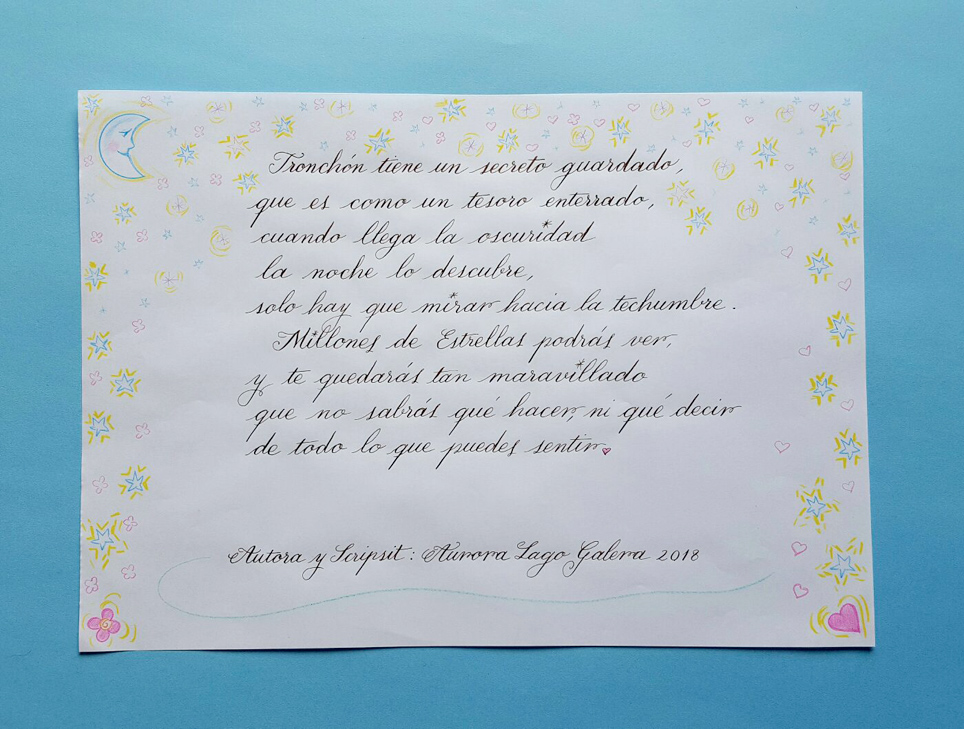 Tronchón tiene un secreto guardado,
que es como un tesoro enterrado,
cuando llega la oscuridad
la noche lo descubre,
solo hay que mirar hacia la techumbre.
Millones de Estrellas podrás ver,
y te quedarás tan maravillado
que no sabrás qué hacer, ni qué decir
de todo lo que puedes sentir
Autora y Scripsit: Aurora Lago Galera 2018